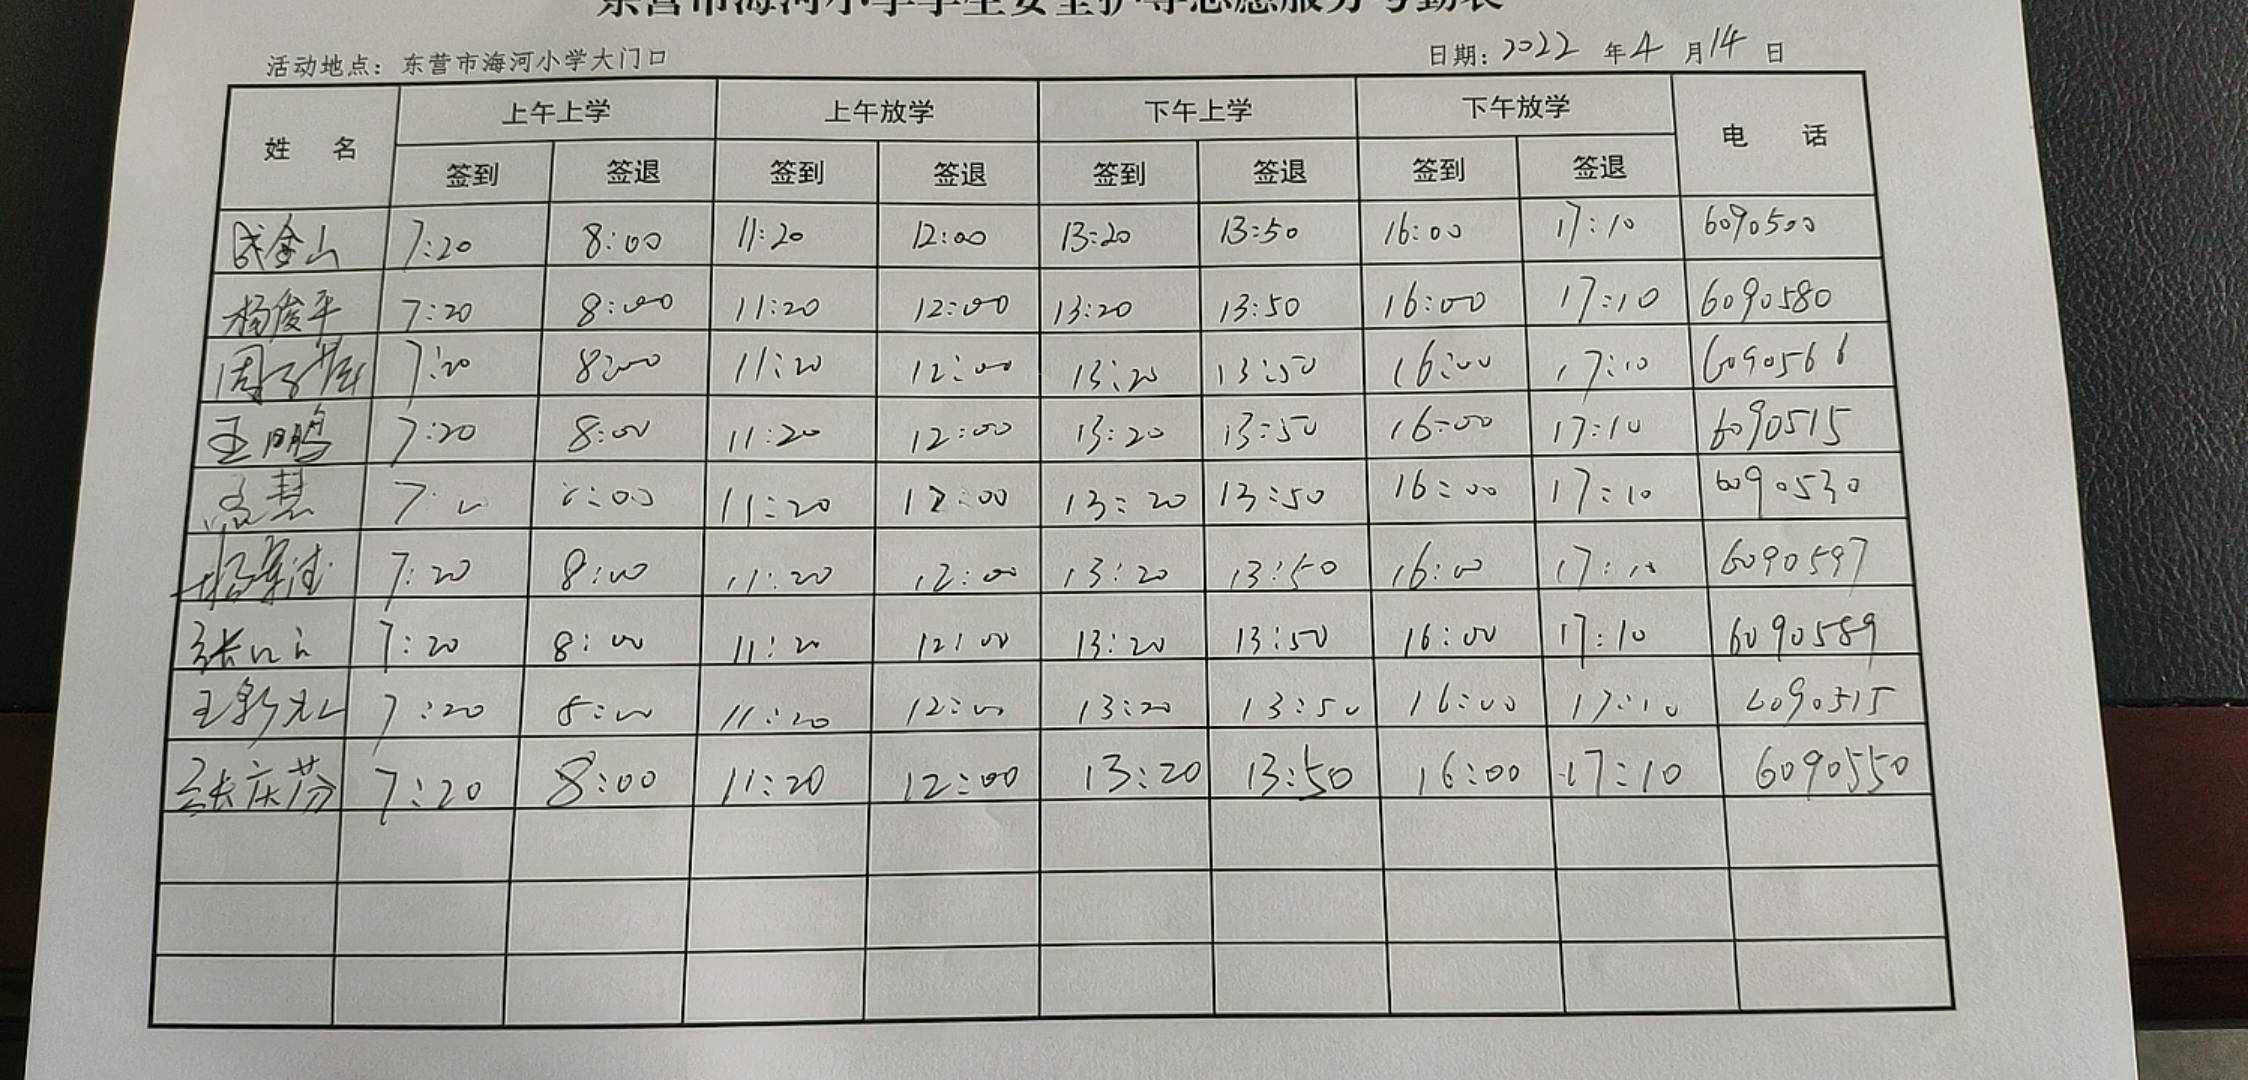 东营市海河小学学生安全护导志愿服务考勤表
活动地点：东营市海河小学大门口 日期：2022 年 4 月 14 日
姓 名 上午上学 上午放学 下午上学 下午放学 电 话
签到 签退 签到 签退 签到 签退 签到 签退
金山 7:20 8:00 11:20 12:00 13:20 13:50 16:00 17:10 6090500
杨俊平 7:20 8:00 11:20 12:00 13:20 13:50 16:00 17:10 6090580
周子 7:20 8:00 11:20 12:00 13:20 13:50 16:00 17:10 6090566
王鹏 7:20 8:00 11:20 12:00 13:20 13:50 16:00 17:10 6090515
慧 :00 11:20 12:00 13:20 13:50 16:00 17:10 6090530
杨 7:20 8:00 11:20 12:00 13:20 13:50 16:00 17:10 6090597
张 7:20 8:00 11:20 12:00 13:20 13:50 16:00 17:10 6090589
王 7:20 8:00 11:20 12:00 13:20 13:50 16:00 17:10 6090515
张庆芬 7:20 8:00 11:20 12:00 13:20 13:50 16:00 17:10 6090550